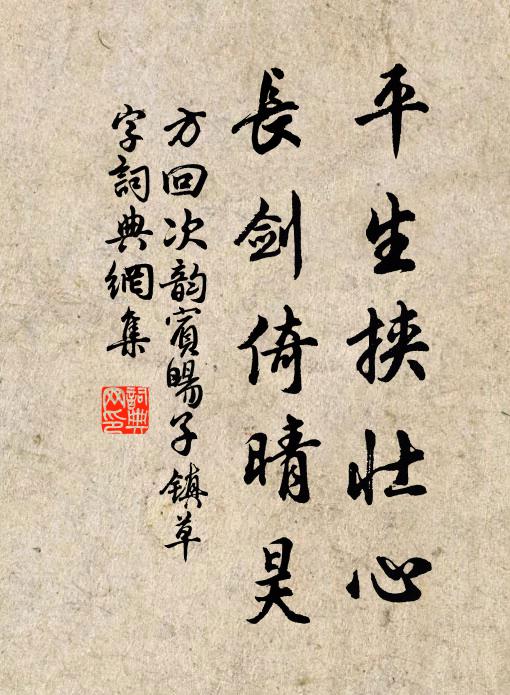 平生挾壯心
長劍倚晴昊
方回次韵賓暘子 鎮草
字詞典網集
詞典网印